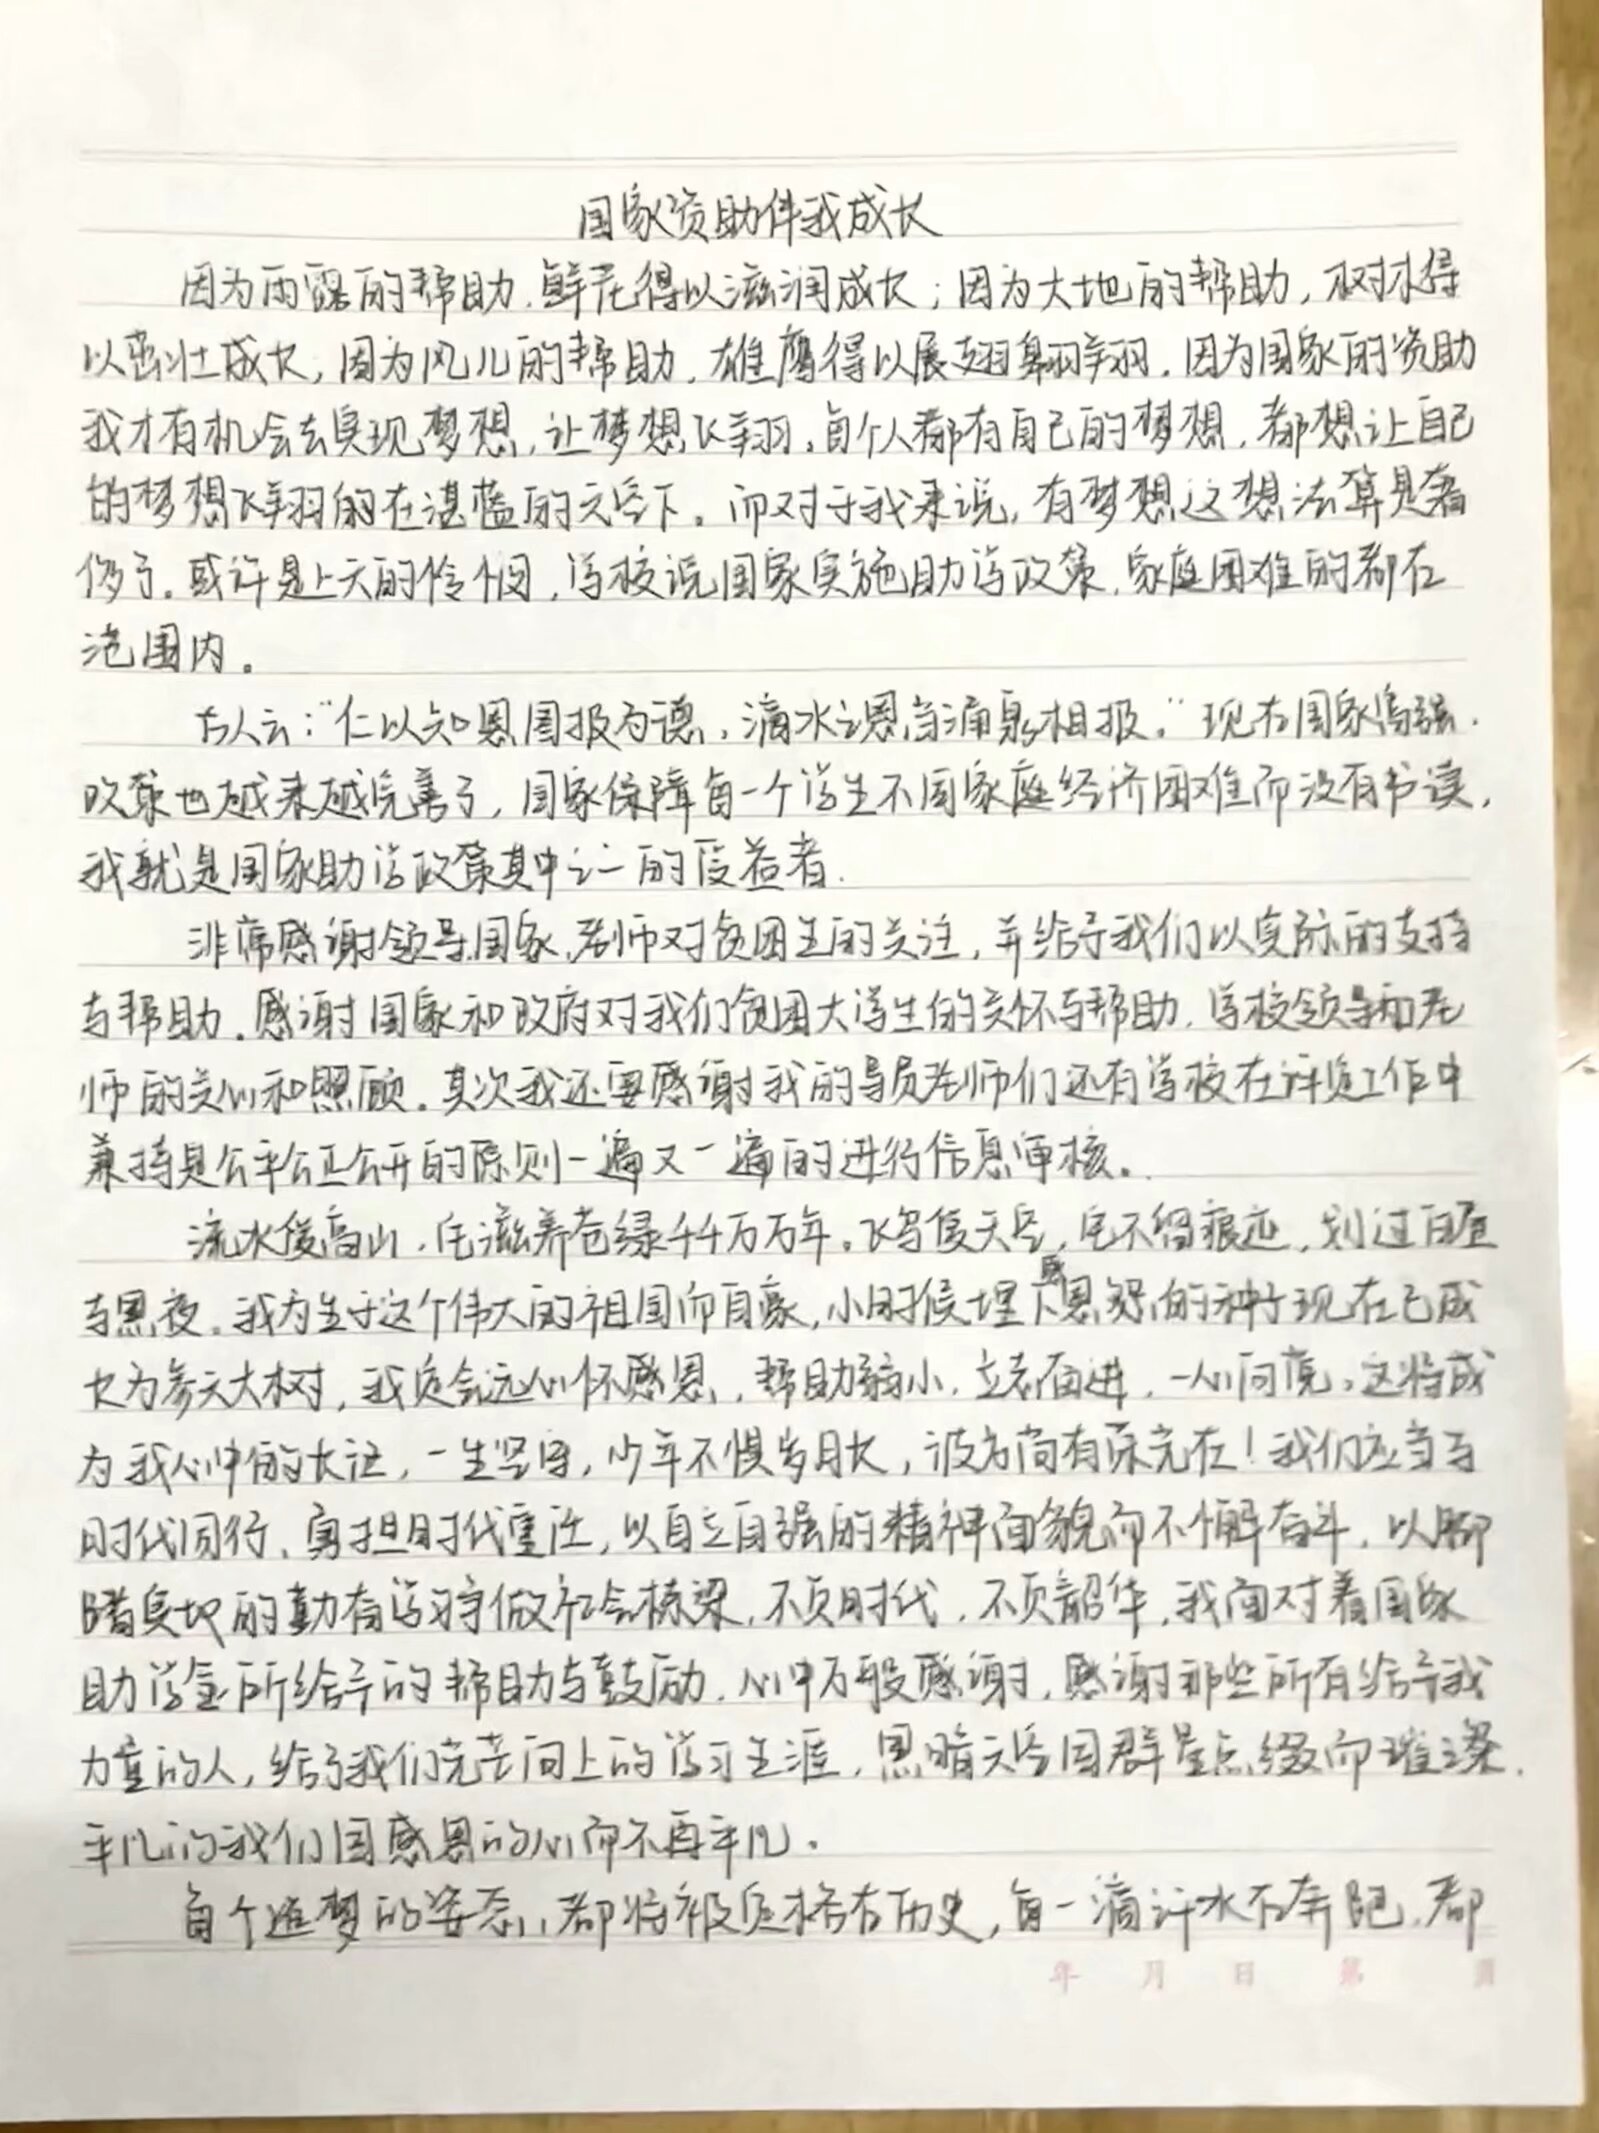 国家资助伴我成长
因为雨露的帮助，鲜花得以滋润成长；因为大地的帮助，树木得
以茁壮成长；因为风儿的帮助，雄鹰得以展翅翱翔。因为国家的资助
我才有机会去实现梦想，让梦想飞翔。每个人都有自己的梦想，都想让自己
的梦想飞翔的在湛蓝的天空下。而对于我来说，有梦想这想法算是奢
侈了。或许是上天的怜悯，学校说国家实施助学政策，家庭困难的都在
范围内。
古人云：“仁以知恩图报为德，滴水之恩当涌泉相报。”现在国家富强，
政策也越来越完善了，国家保障每一个学生不因家庭经济困难而没有书读，
我就是国家助学政策其中之一的受益者．
非常感谢领导国家，老师对贫困生的关注，并给予我们以实际的支持
与帮助。感谢国家和政府对我们贫困大学生的关怀与帮助，学校领导和老
师的关心和照顾。其次我还要感谢我的导员老师们还有学校在评选工作中
兼持是公平公正公开的原则一遍又一遍的进行信息审核。
流水使高山，它滋养苍绿千千万万年。飞鸟使天空，它不留痕迹，划过白昼
与黑夜。我为生于这个伟大的祖国而自豪，小时候埋下感恩的种子现在已成
长为参天大树，我定会远心怀感恩，帮助弱小，立志奋进，一心向党。这将成
为我心中的长征，一生坚守，少年不惧岁月长，彼方尚有荣光在！我们应当与
时代同行、勇担时代重任，以自立自强的精神面貌而不懈奋斗，以脚
踏实地的勤奋学习争做社会栋梁，不负时代，不负韶华，我面对着国家
助学金所给予的帮助与鼓励，心中万般感谢，感谢那些所有给予我
力量的人，给了我们光芒向上的学习生涯，黑暗天空因群星点缀而璀璨，
平凡的我们因感恩的心而不再平凡。
每个追梦的姿态，都将被定格在历史，每一滴汗水在奔跑，都
年 月 日 第 页